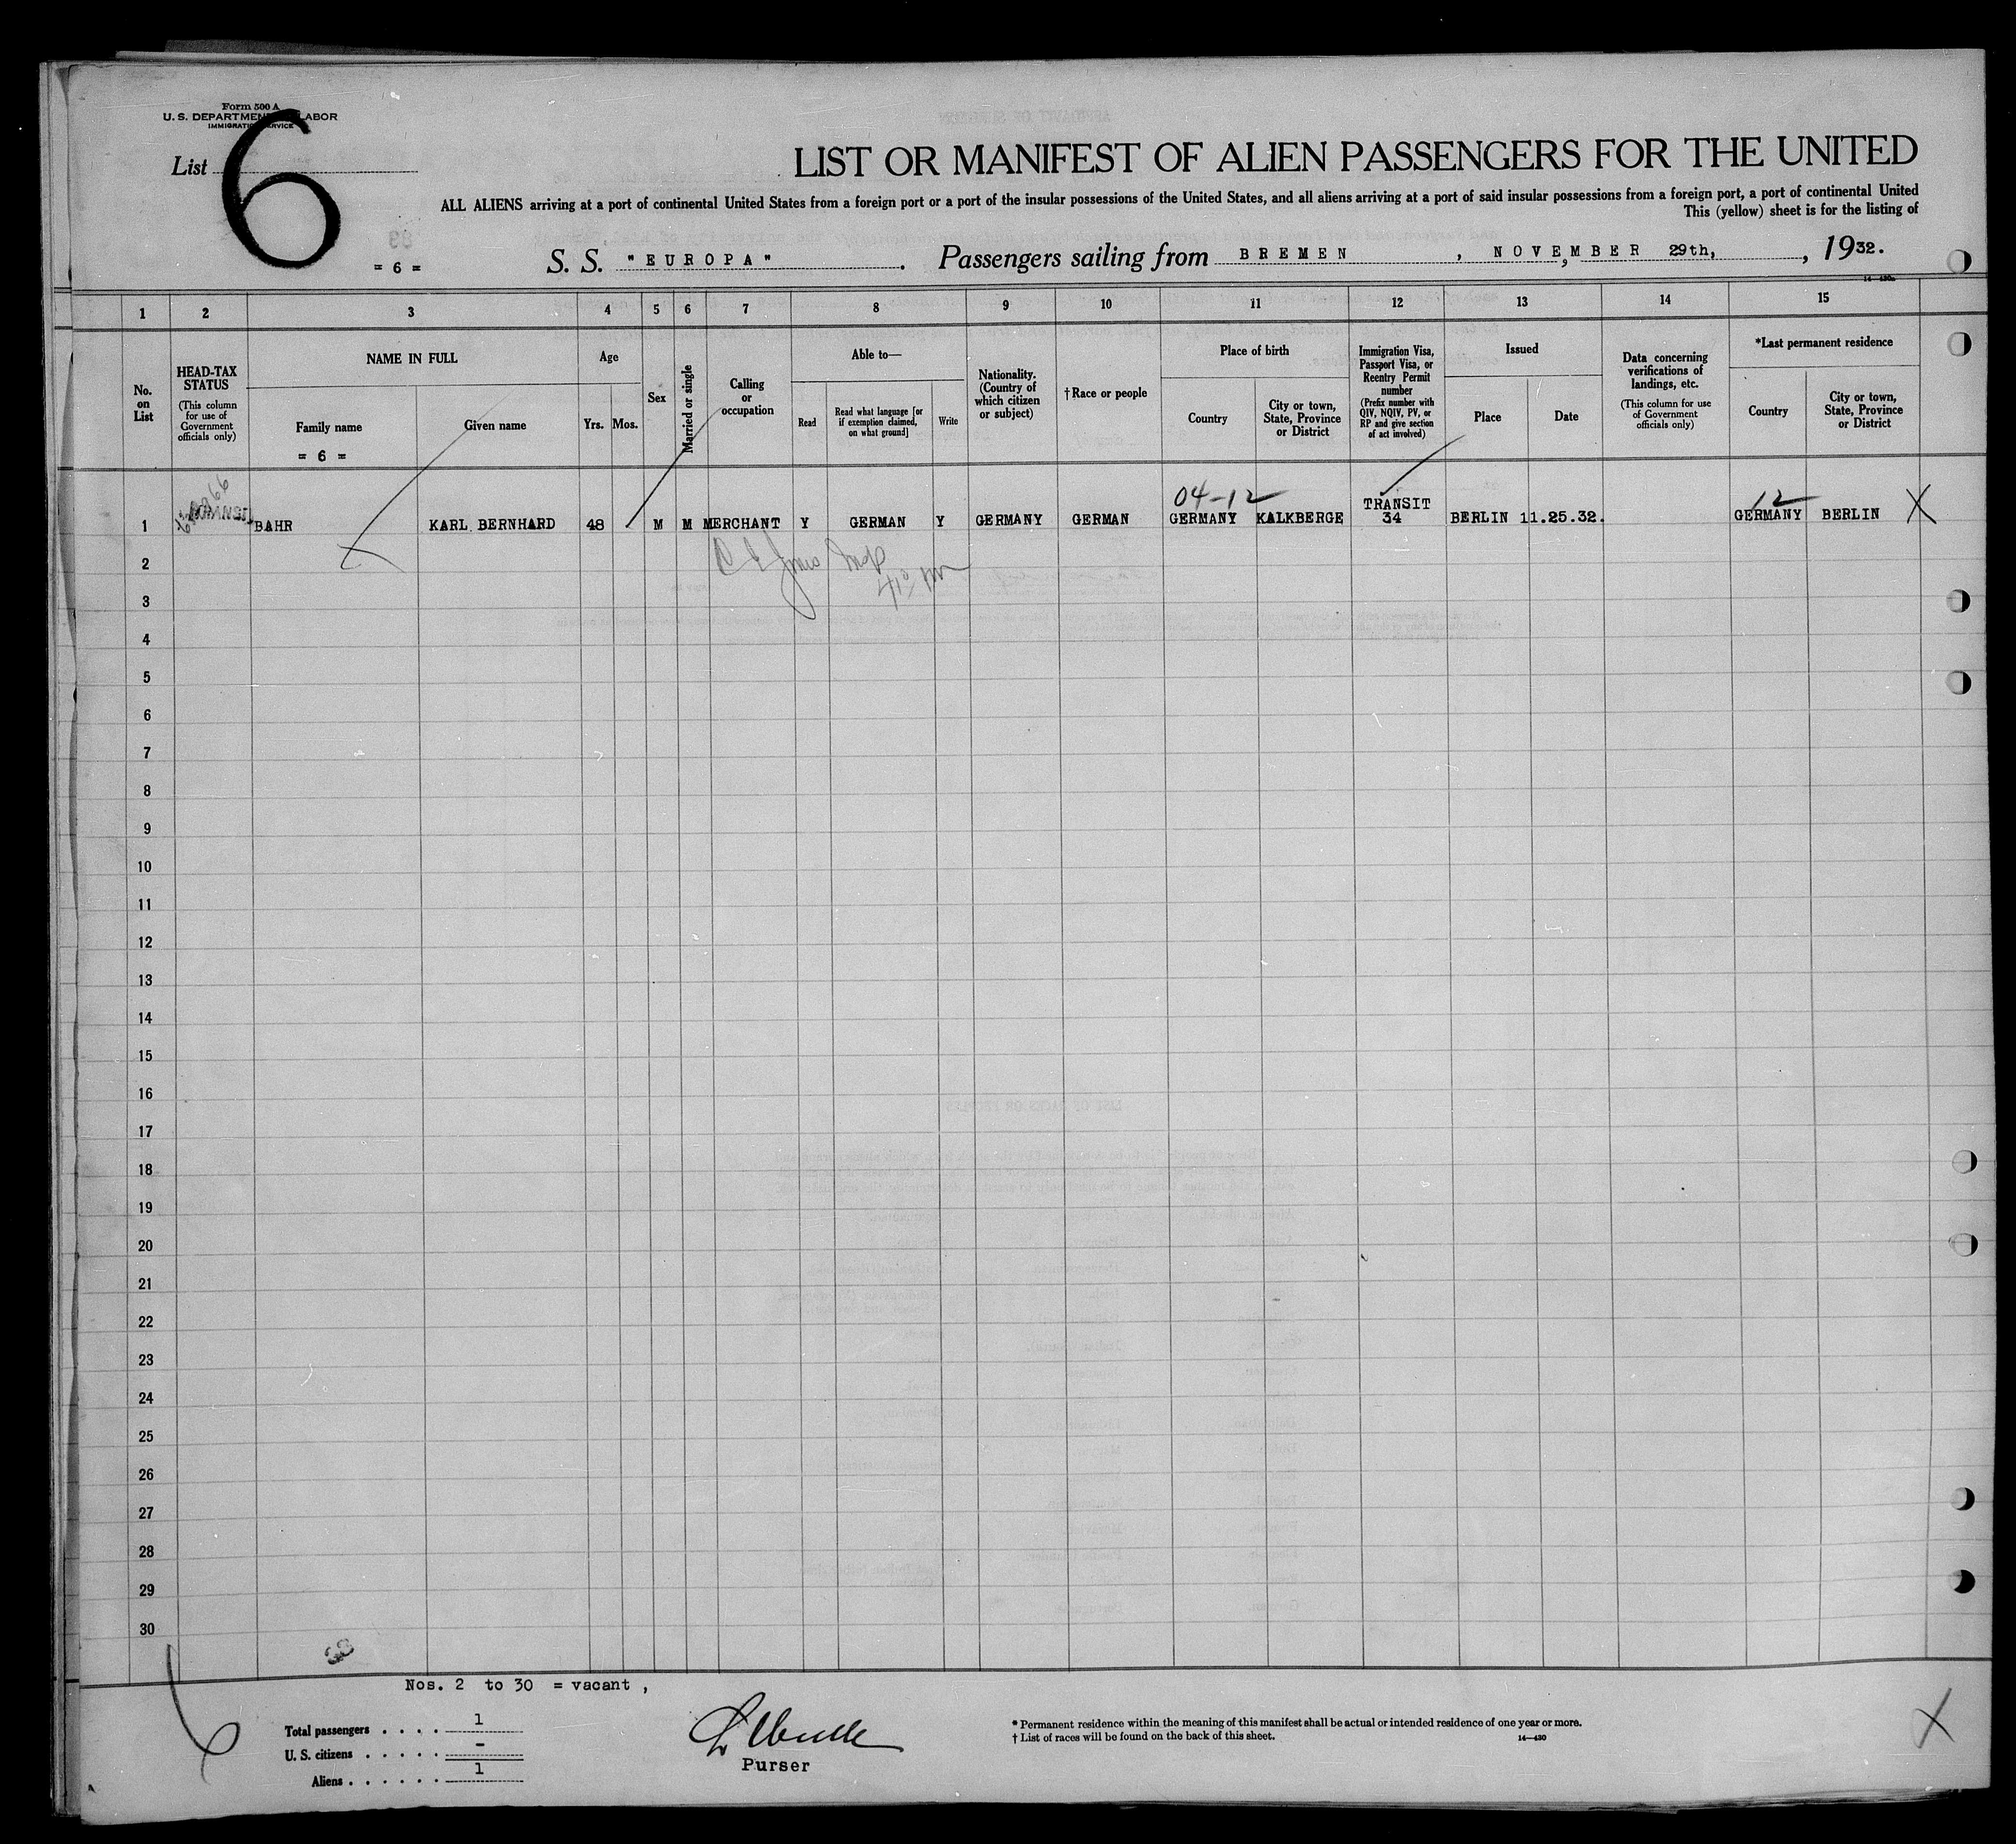 Form 500 A
U. S. DEPARTMENT OF LABOR
IMMIGRATION SERVICE
List 6
= 6 =
LIST OR MANIFEST OF ALIEN PASSENGERS FOR THE UNITED
ALL ALIENS arriving at a port of continental United States from a foreign port or a port of the insular possessions of the United States, and all aliens arriving at a port of said insular possessions from a foreign port, a port of continental United
This (yellow) sheet is for the listing of
S. S. "EUROPA" . Passengers sailing from BREMEN , NOVEMBER 29th, , 1932.
14—430
1 2 3 4 5 6 7 8 9 10 11 12 13 14 15
No. on List
HEAD-TAX STATUS
(This column for use of Government officials only)
NAME IN FULL
Family name
= 6 =
Given name
Age
Yrs. Mos.
Sex
Married or single
Calling or occupation
Able to—
Read
Read what language [or if exemption claimed, on what ground]
Write
Nationality. (Country of which citizen or subject)
† Race or people
Place of birth
Country
City or town, State, Province or District
Immigration Visa, Passport Visa, or Reentry Permit number
(Prefix number with QIV, NQIV, PV, or RP and give section of act involved)
Issued
Place
Date
Data concerning verifications of landings, etc.
(This column for use of Government officials only)
*Last permanent residence
Country
City or town, State, Province or District
04-12
12
TRANSIT
1 BAHR KARL BERNHARD 48 M M MERCHANT Y GERMAN Y GERMANY GERMAN GERMANY KALKBERGE 34 BERLIN 11.25.32. GERMANY BERLIN X
2
3
4
5
6
7
8
9
10
11
12
13
14
15
16
17
18
19
20
21
22
23
24
25
26
27
28
29
30
Nos. 2 to 30 = vacant ,
Total passengers . . . . 1
U. S. citizens . . . . . -
Aliens . . . . . . 1
Purser
* Permanent residence within the meaning of this manifest shall be actual or intended residence of one year or more.
† List of races will be found on the back of this sheet.
14—430
X